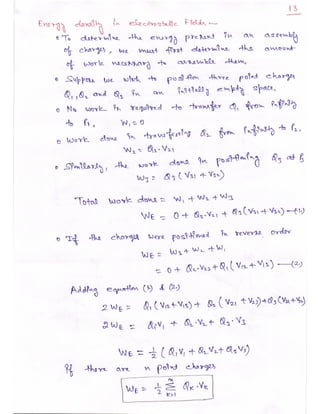 13
Energy density in electrostatic Fields:-
• To determine the energy present in an assembly
of charges, we must first determine the amount
of work necessary to assemble them.
• Suppose we wish to position three point charges
Q₁, Q₂ and Q₃ in an initially empty space.
• No work is required to transfer Q₁ from infinity
to P₁. W₁ = 0
• Work done in transferring Q₂ from infinity to P₂.
W₂ = Q₂·V₂₁
• Similarly, the work done in positioning Q₃ at P₃
W₃ = Q₃ (V₃₁ + V₃₂)
Total work done = W₁ + W₂ + W₃
WE = 0 + Q₂·V₂₁ + Q₃ (V₃₁ + V₃₂) —(1)
• If the charges were positioned in reverse order
WE = W₃ + W₂ + W₁
= 0 + Q₂·V₂₃ + Q₁ (V₁₂ + V₁₃) —(2)
Adding equation (1) & (2)
2WE = Q₁ (V₁₂ + V₁₃) + Q₂ (V₂₁ + V₂₃) + Q₃ (V₃₁ + V₃₂)
2WE = Q₁V₁ + Q₂·V₂ + Q₃·V₃
WE = 1/2 (Q₁V₁ + Q₂V₂ + Q₃V₃)
If there are n point charges
WE = 1/2 Σ Qk·Vk
K=1